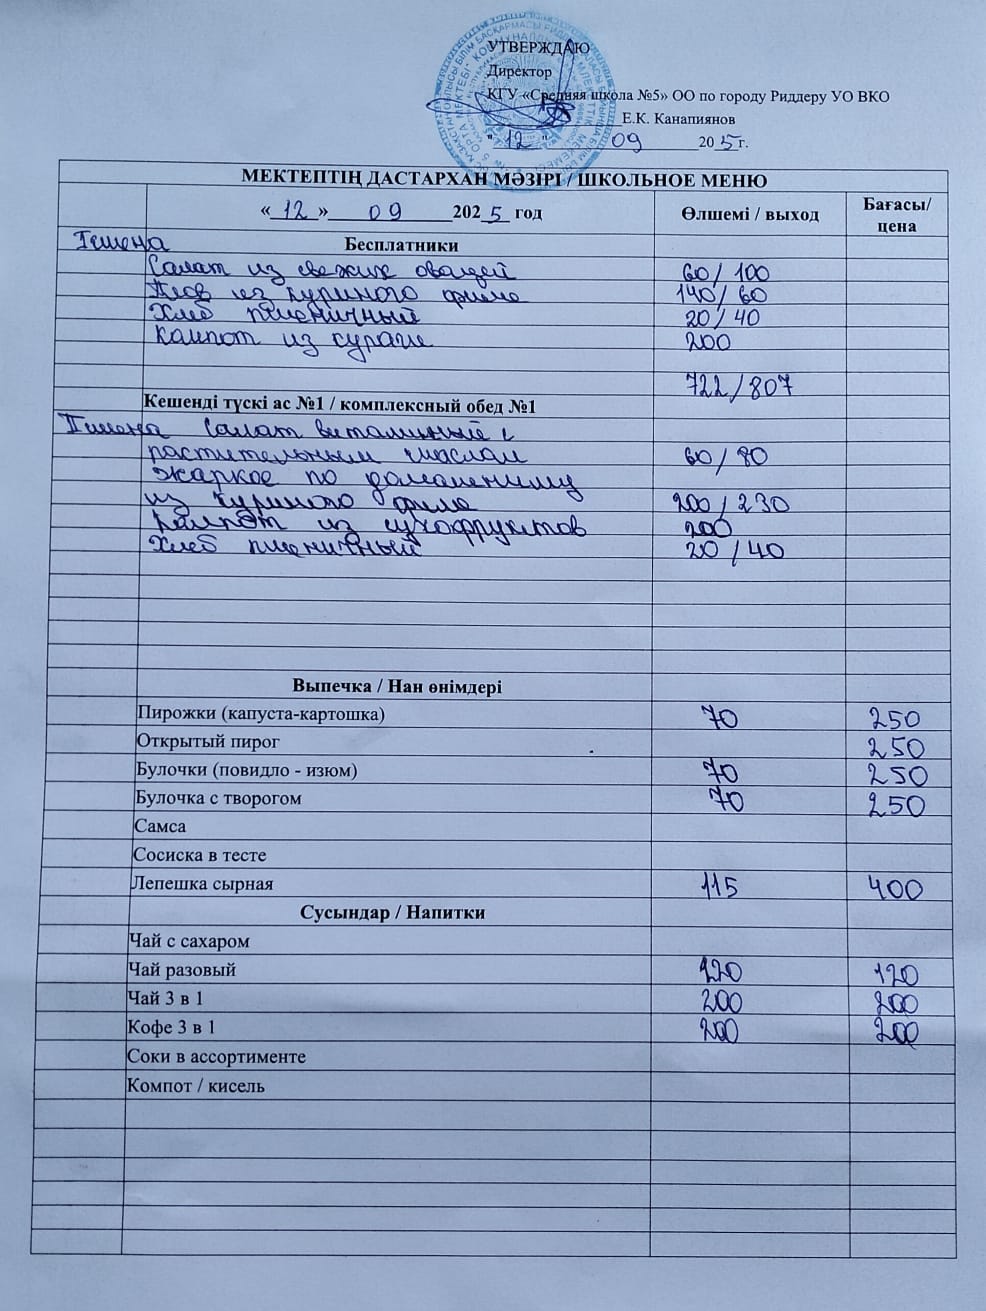 УТВЕРЖДАЮ
Директор
КГУ «Средняя школа №5» ОО по городу Риддеру УО ВКО
Е.К. Канапиянов
"12" 09 2025г.
МЕКТЕПТІҢ ДАСТАРХАН МӘЗІРІ / ШКОЛЬНОЕ МЕНЮ
«12» 09 2025 год Өлшемі / выход Бағасы/ цена
I смена Бесплатники
Салат из свежих овощей 60/100
Плов из куриного филе 140/60
Хлеб пшеничный 20/40
Компот из кураги 200
722/807
Кешенді түскі ас №1 / комплексный обед №1
II смена Салат витаминный с
растительным маслом 60/80
Жаркое по домашнему
из куриного филе 200/230
Компот из сухофруктов 200
Хлеб пшеничный 20/40
Выпечка / Нан өнімдері
Пирожки (капуста-картошка) 70 250
Открытый пирог 250
Булочки (повидло - изюм) 70 250
Булочка с творогом 70 250
Самса
Сосиска в тесте
Лепешка сырная 115 400
Сусындар / Напитки
Чай с сахаром
Чай разовый 120 120
Чай 3 в 1 200 200
Кофе 3 в 1 200 200
Соки в ассортименте
Компот / кисель